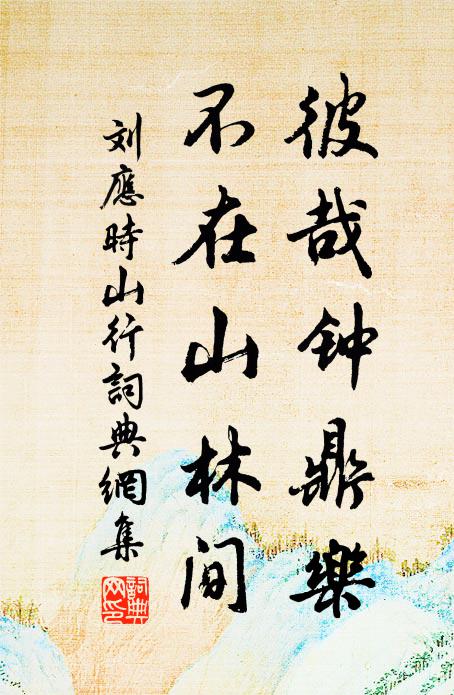 彼哉钟鼎樂
不在山林间
刘應時山行詞典網集
詞典网印